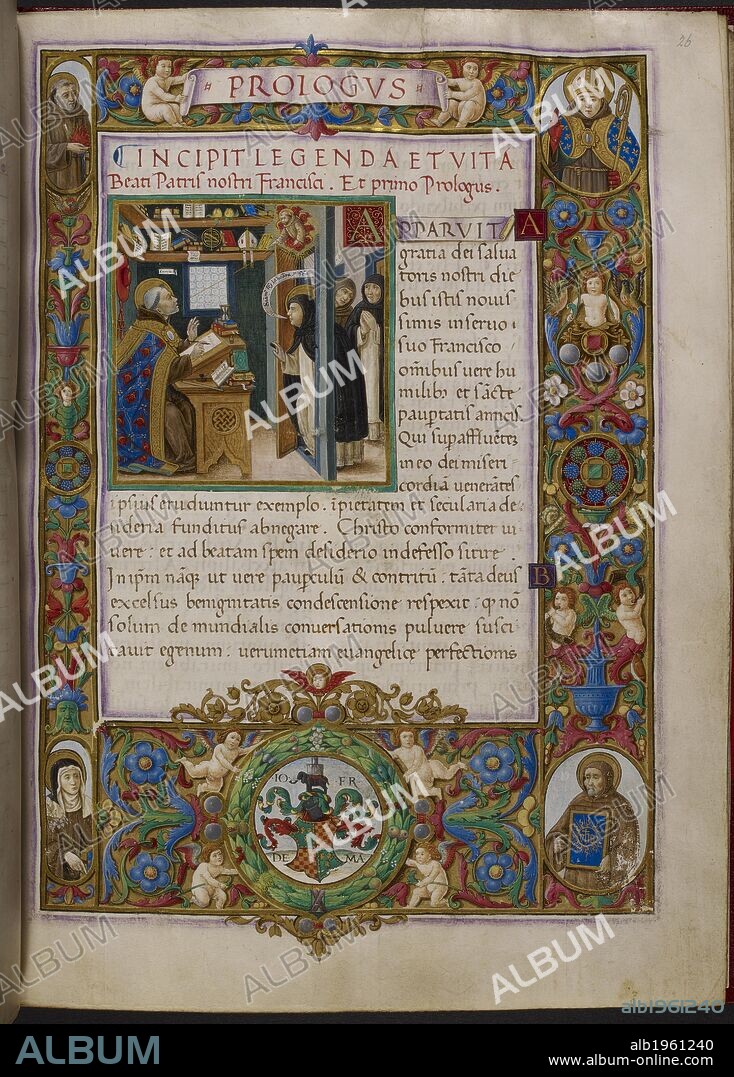 26
PROLOGVS
INCIPIT LEGENDA ET VITA
Beati Patris nostri Francisci. Et primo Prologus.
APPARVIT A
gratia dei salua
toris nostri die
bus istis nouis
simis in seruo
suo Francisco
omībus uere hu
milibꝫ et sācte
paup̄tatis amicis
Qui sup̄affluētē
in eo dei miseri
cordiā uenerātes
ipsius erudiuntur exemplo. īpietatem et secularia de
sideria funditus abnegare. Christo conformiter ui
uere: et ad beatam spem desiderio indefesso sitire.
B
In ipm̄ nāqꝫ ut uere paup̄culū & contritū: tāta deus
excelsus benignitatis condescensione respexit: ꝙ nō
solum de mundialis conuersationis puluere susci
tauit egenum: uerumetiam euangelicę perfectionis
IO FR
DE MA
ALBUM
alb1961240
ALBUM
alb1961240
www.album-online.com